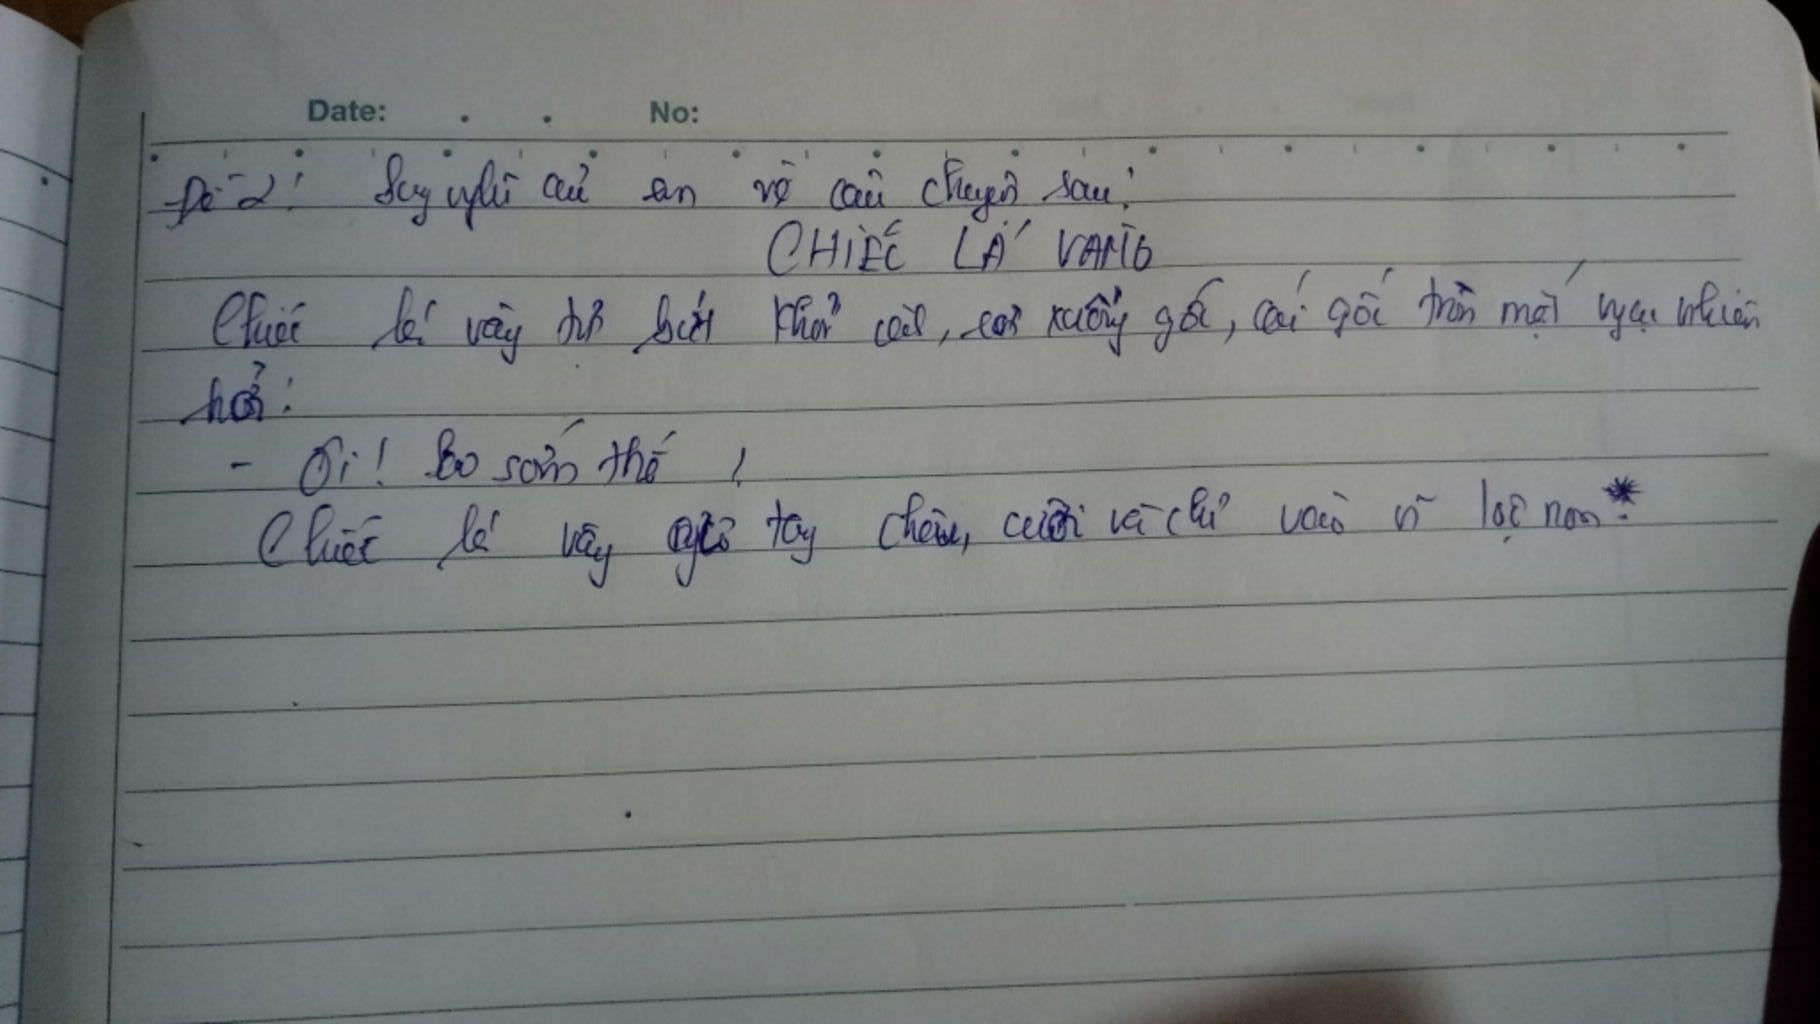 Date: . . No:
Đề 2: Suy nghĩ của em về câu chuyện sau:
CHIẾC LÁ VÀNG
Chiếc lá vàng tự bứt khỏi cành, rơi xuống gốc, cái gốc tròn mắt ngạc nhiên
hỏi:
- Ôi! Sao sớm thế !
Chiếc lá vàng giơ tay chào, cười và chỉ vào lộc non.